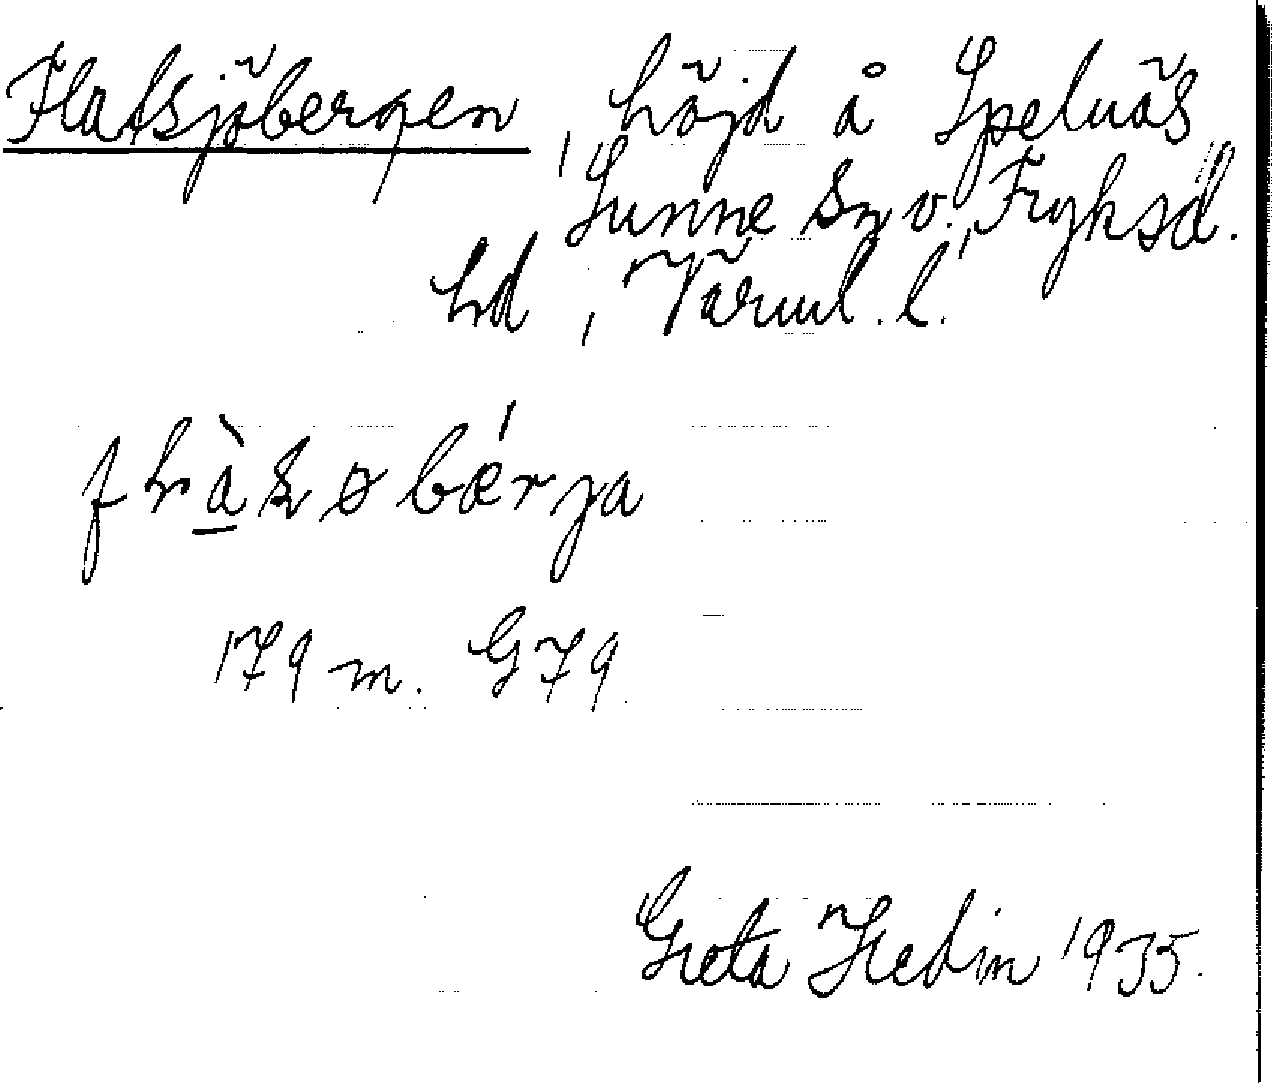 Flatsjöbergen, höjd å Spelnäs
Sunne sn v. Fryksd.
hd, Värml. l.
179 m. G79
Greta Hedin 1935.